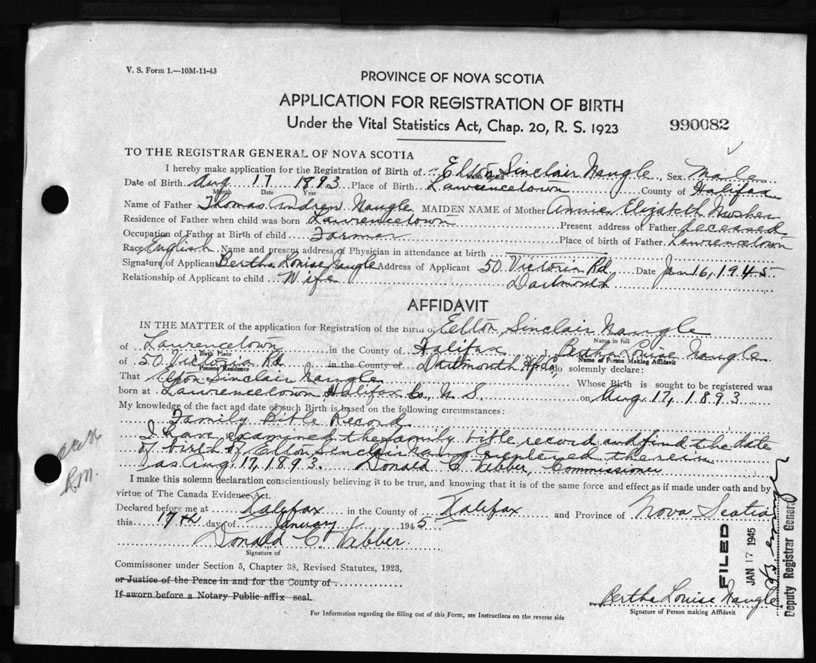 V. S. Form 1.—10M-11-43
PROVINCE OF NOVA SCOTIA
APPLICATION FOR REGISTRATION OF BIRTH
Under the Vital Statistics Act, Chap. 20, R. S. 1923
990082
TO THE REGISTRAR GENERAL OF NOVA SCOTIA
I hereby make application for the Registration of Birth of Elton Sinclair Naugle Sex Male
Date of Birth Aug 17 1893 Place of Birth Lawrencetown County of Halifax
Month Date Year
Name of Father Thomas Andrew Naugle MAIDEN NAME of Mother Annie Elizabeth
Residence of Father when child was born Lawrencetown Present address of Father deceased
Occupation of Father at Birth of child Farmer Place of birth of Father Lawrencetown
Race English Name and present address of Physician in attendance at birth
Signature of Applicant Bertha Louise Naugle Address of Applicant 50 Victoria Rd Date Jan 16, 1945
Relationship of Applicant to child Wife Dartmouth
AFFIDAVIT
IN THE MATTER of the application for Registration of the Birth of Elton Sinclair Naugle
Name in full
of Lawrencetown in the County of Halifax Bertha Louise Naugle
Birth Place Name of Person Making Affidavit
of 50 Victoria Rd in the County of Dartmouth Hfx Co, do solemnly declare:
Present Residence
That Elton Sinclair Naugle Whose Birth is sought to be registered was
born at Lawrencetown Halifax Co, N. S. on Aug 17, 1893
My knowledge of the fact and date of such Birth is based on the following circumstances:
Family Bible Record
I have examined the family bible record and find the date
of birth of Elton Sinclair Naugle registered therein
as Aug. 17, 1893. Donald C. Vabber, Commissioner
R.M.
I make this solemn declaration conscientiously believing it to be true, and knowing that it is of the same force and effect as if made under oath and by
virtue of The Canada Evidence Act.
Declared before me at Halifax in the County of Halifax and Province of Nova Scotia
this 17th day of January 1945
Donald C. Vabber
Signature of
Commissioner under Section 5, Chapter 38, Revised Statutes, 1923,
or Justice of the Peace in and for the County of
If sworn before a Notary Public affix seal.
FILED
JAN 17 1945
Deputy Registrar General
Bertha Louise Naugle
Signature of Person making Affidavit
For Information regarding the filling out of this Form, see Instructions on the reverse side